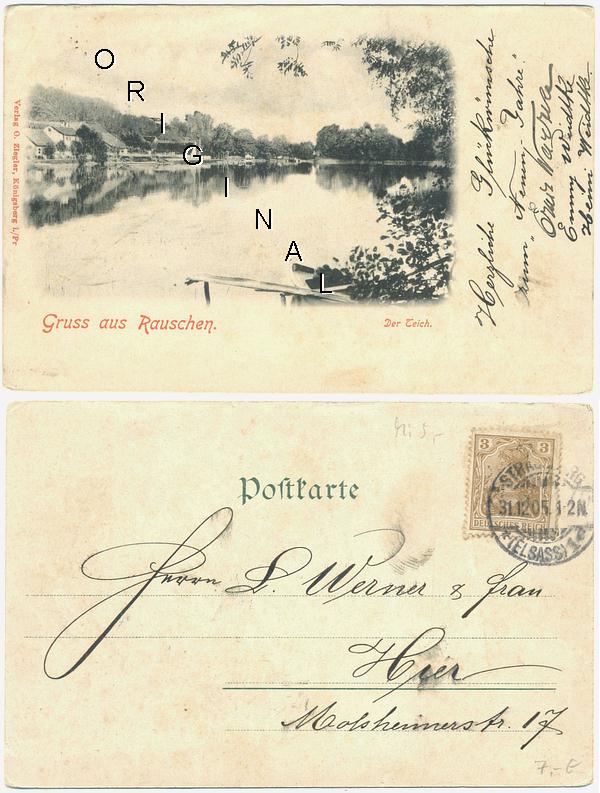 ORIGINAL
Verlag O. Ziegler, Königsberg i/Pr.
Gruss aus Rauschen.
Der Teich.
Herzliche Glückwünsche
zum „Neuen Jahre“.
Emmy Wudtke
Postkarte
3
DEUTSCHES REICH
STRA
31.12.05. 1-2N.
(ELSASS)
Herrn L. Werner & frau
Hier
Molsheimerstr. 17
7,- €